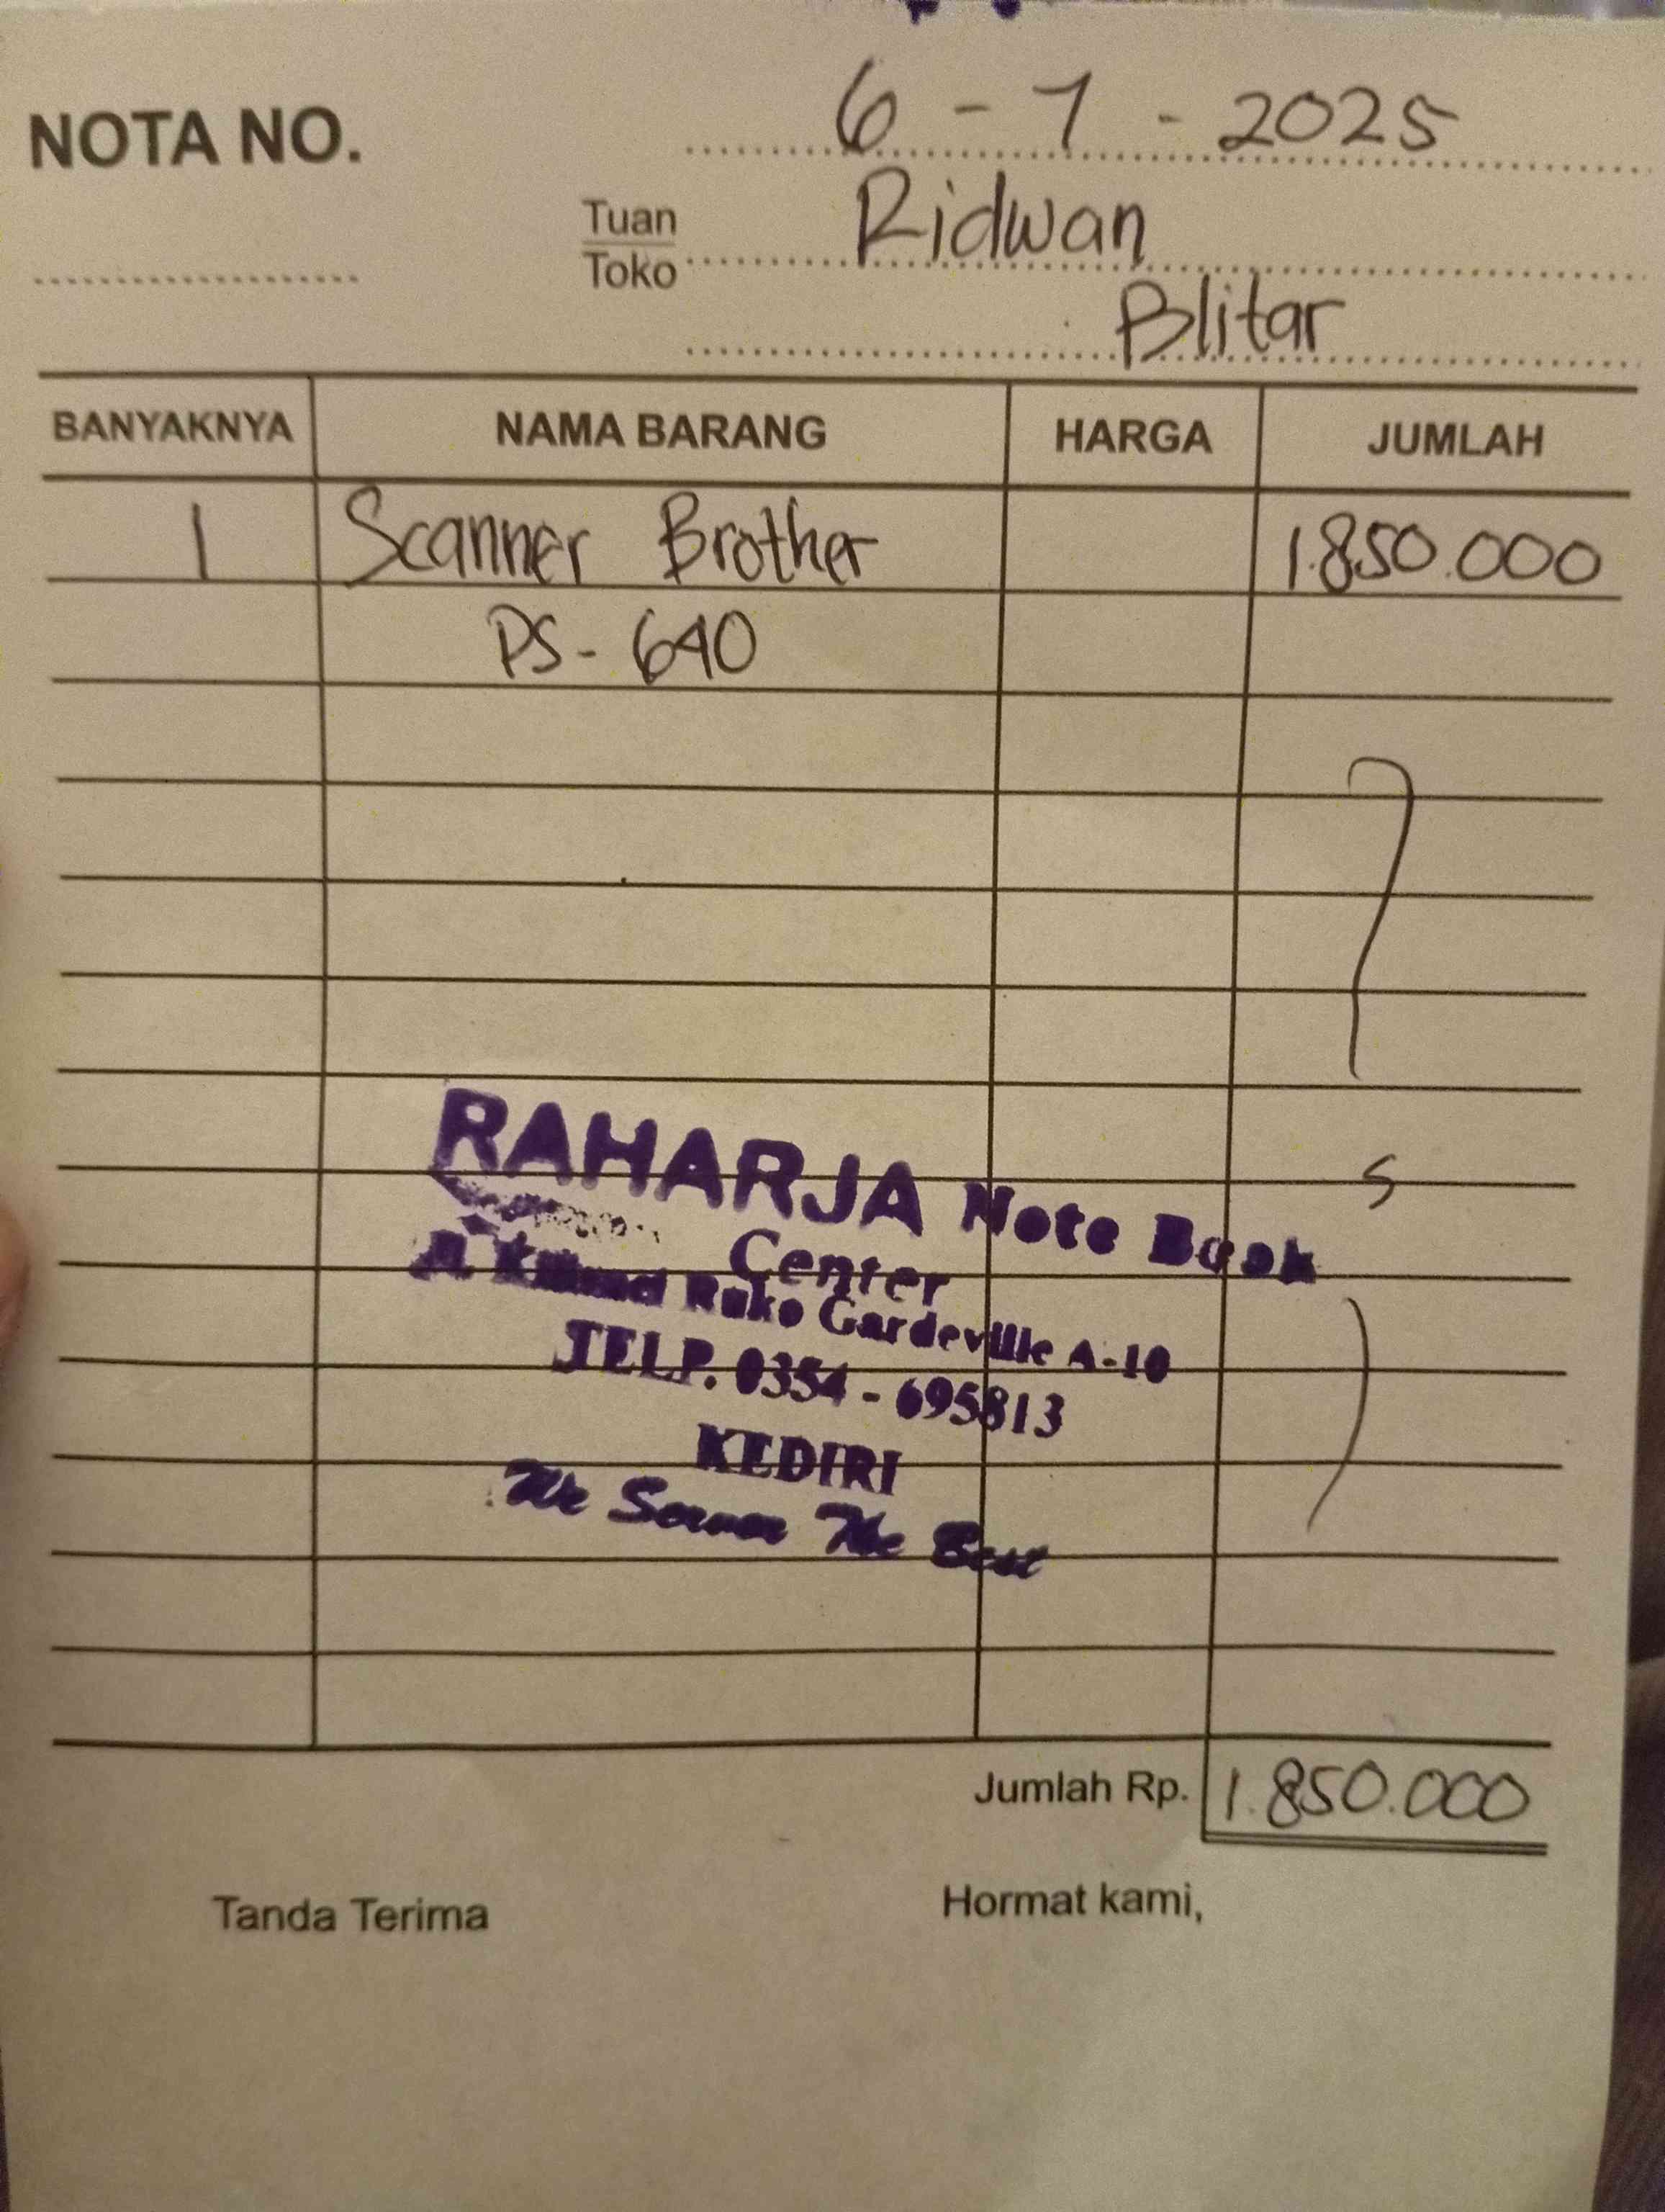 NOTA NO.
6 - 7 - 2025
Tuan
Toko
Ridwan
Blitar
BANYAKNYA NAMA BARANG HARGA JUMLAH
1 Scanner Brother 1.850.000
DS - 640
RAHARJA Note Book
Center
Ruko Gardeville A-10
TELP. 0354 - 695813
KEDIRI
We The Best
Jumlah Rp. 1.850.000
Tanda Terima Hormat kami,